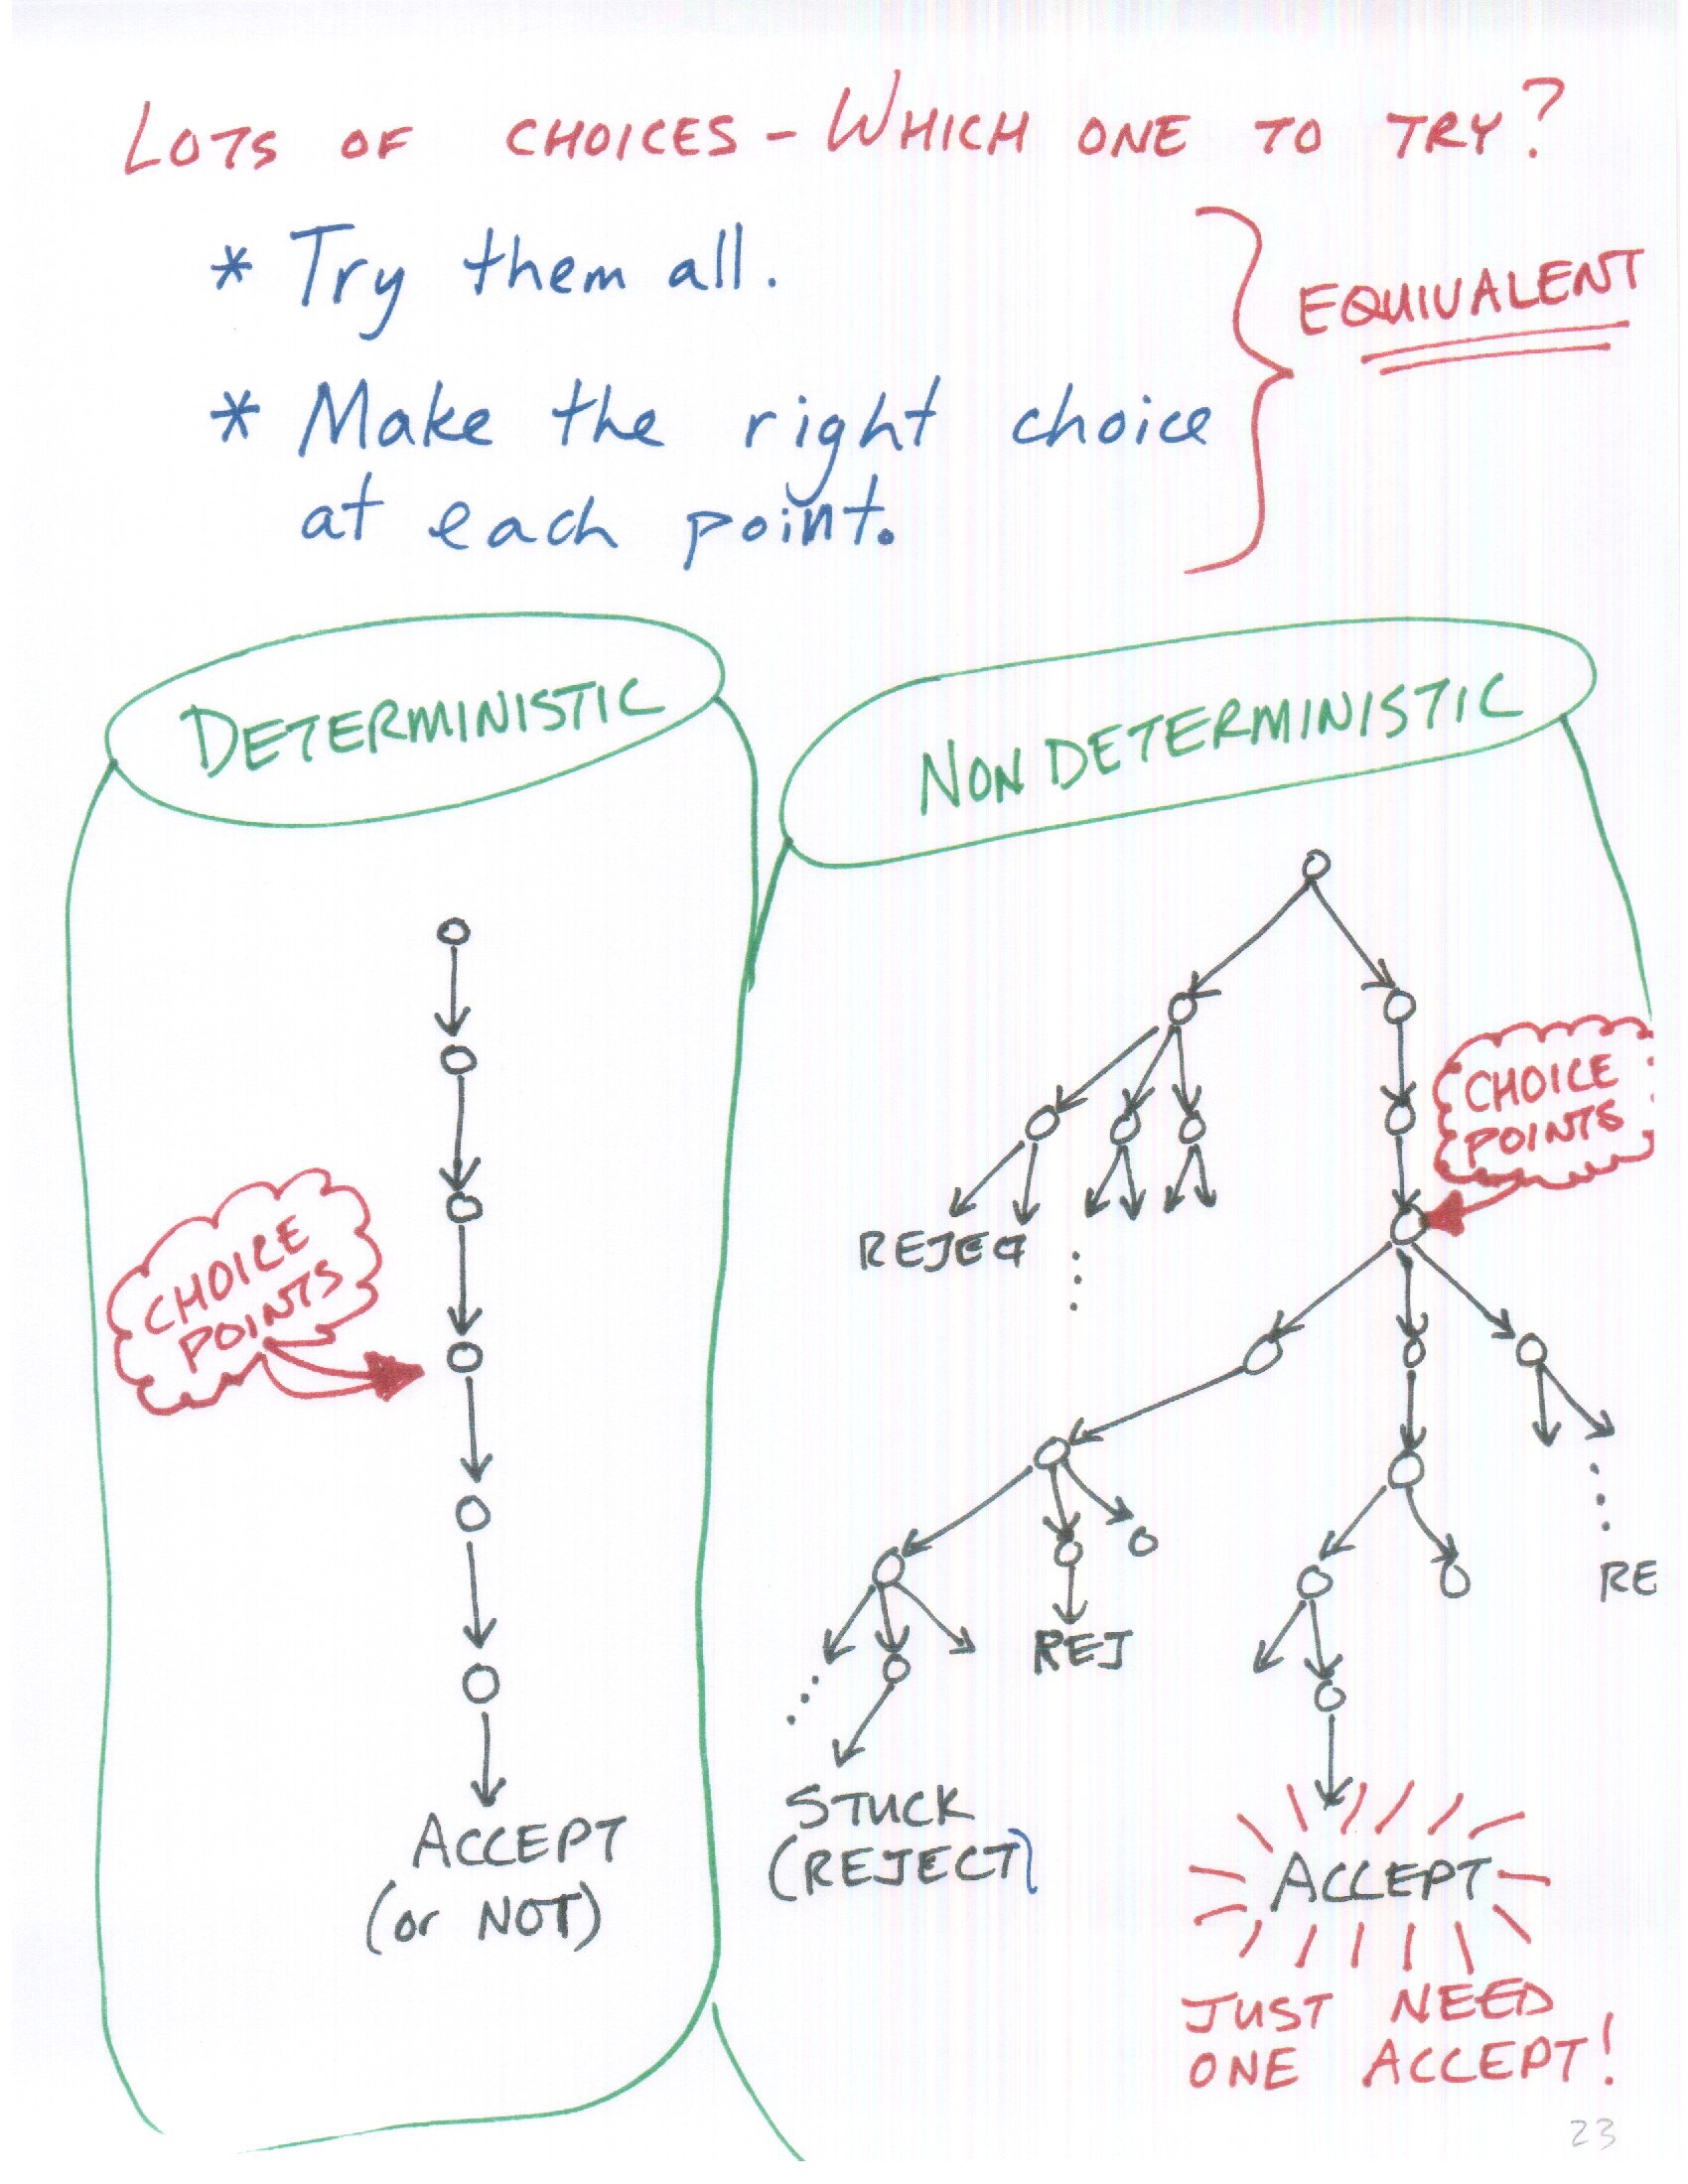 LOTS OF CHOICES - WHICH ONE TO TRY?
* Try them all.
* Make the right choice
at each point.
EQUIVALENT
DETERMINISTIC
CHOICE
POINTS
ACCEPT
(or NOT)
NONDETERMINISTIC
CHOICE
POINTS
REJECT
REJ
RE
STUCK
(REJECT)
ACCEPT
JUST NEED
ONE ACCEPT!
23